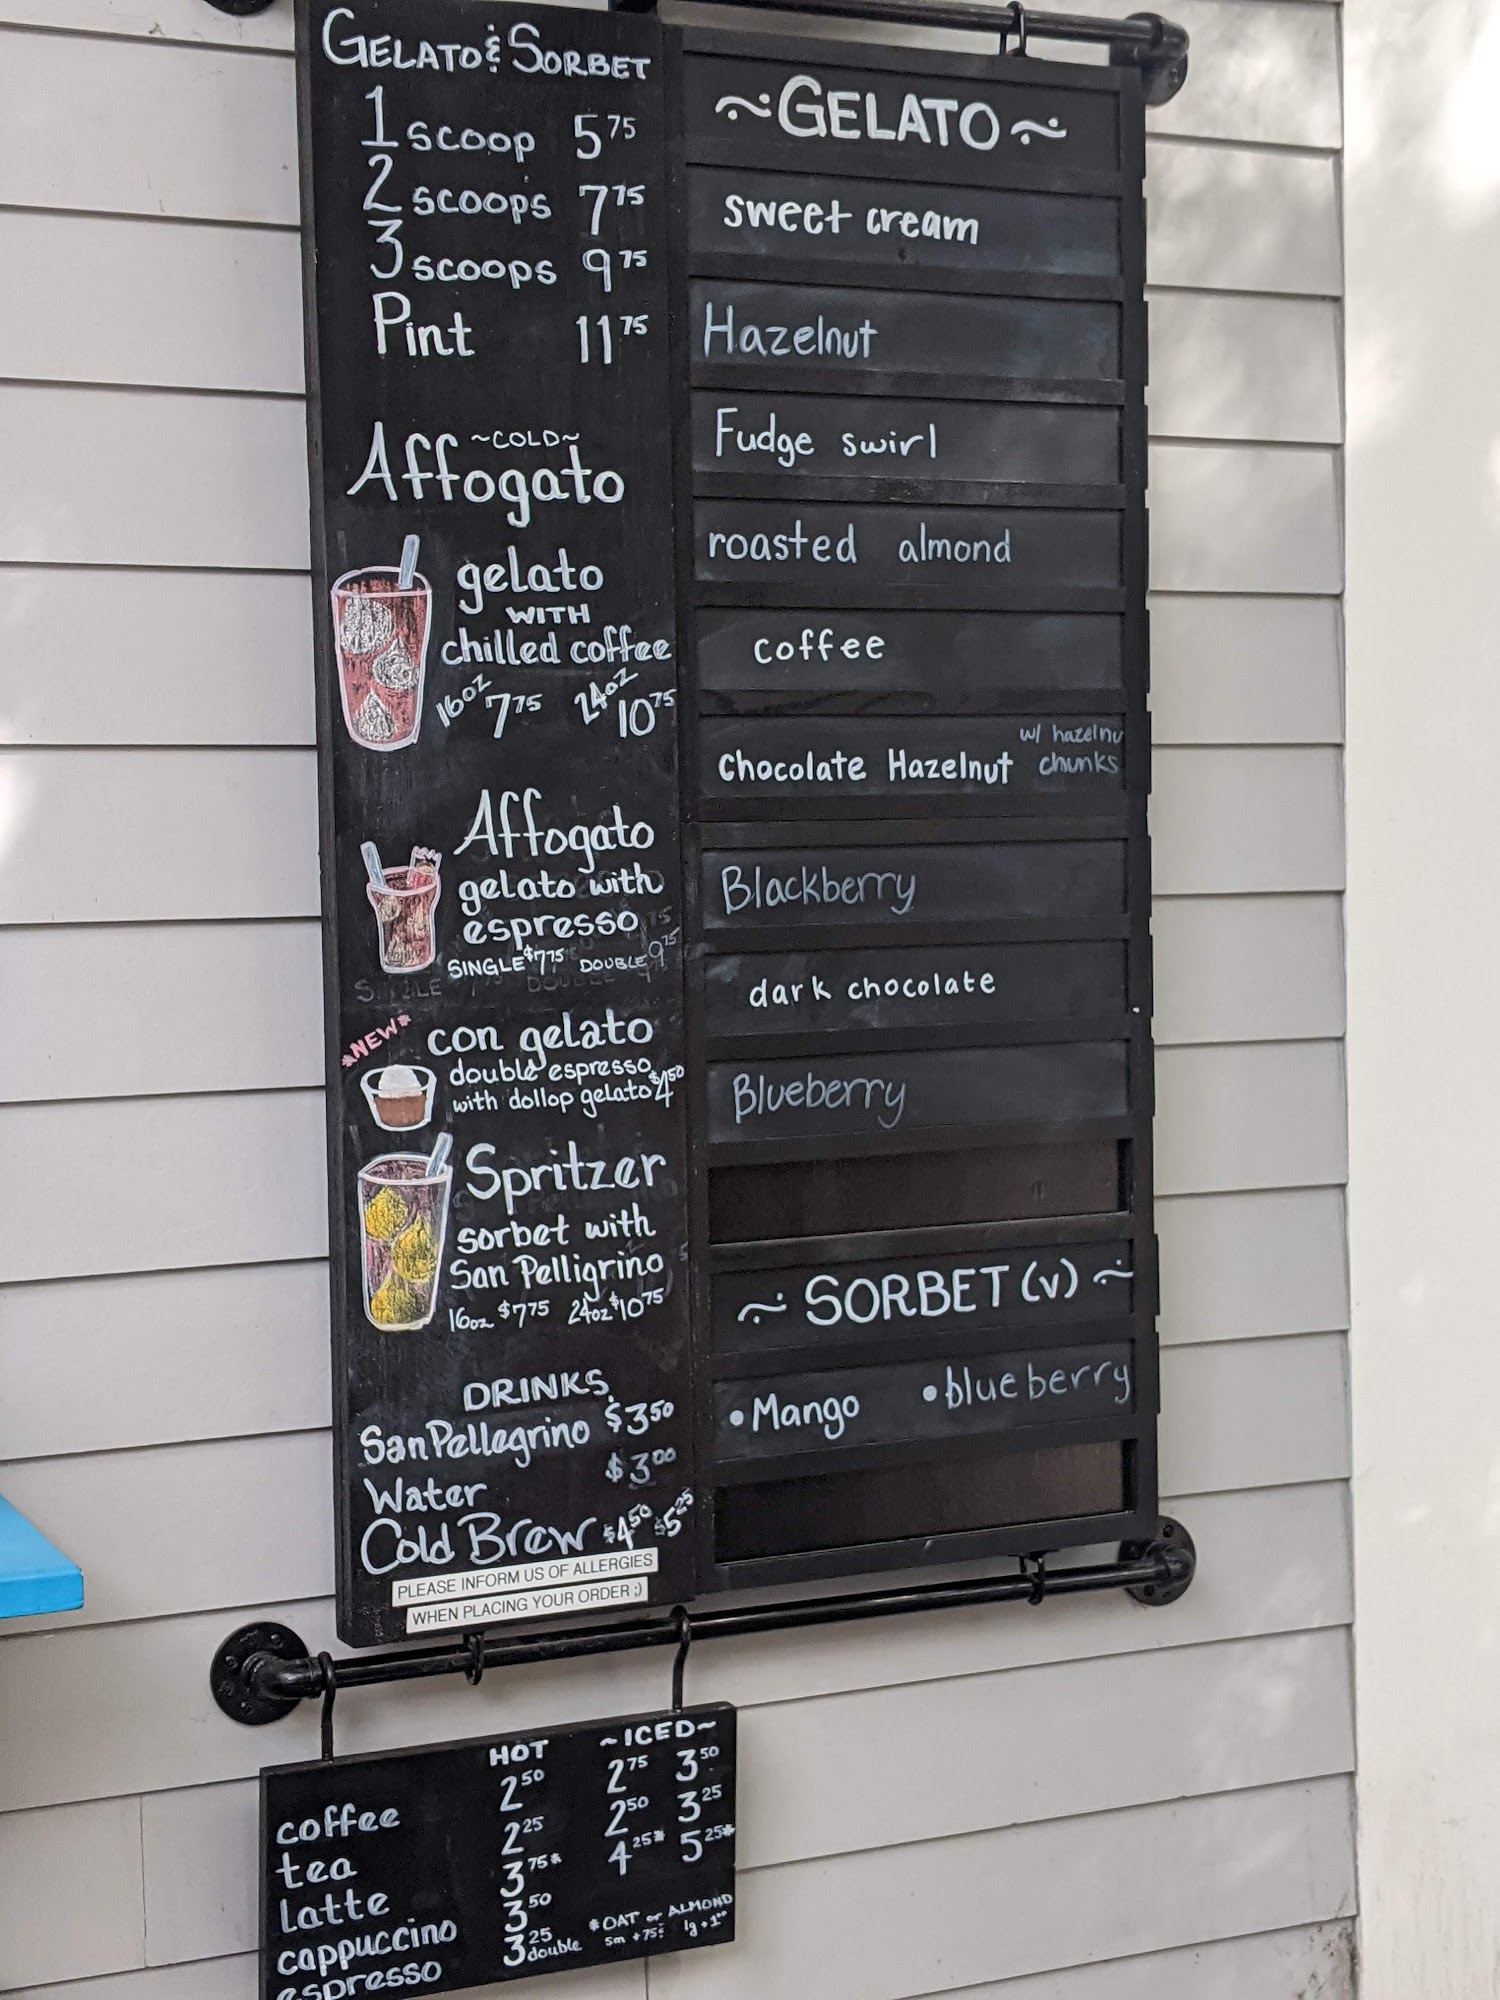 GELATO & SORBET
1 scoop 5 75
2 scoops 7 75
3 scoops 9 75
Pint 11 75
~COLD~
Affogato
gelato
WITH
chilled coffee
16oz 7 75 24oz 10 75
Affogato
gelato with
espresso
SINGLE $7 75 DOUBLE 9 75
*NEW*
con gelato
double espresso
with dollop gelato $4 50
Spritzer
sorbet with
San Pelligrino
16oz $7 75 24oz $10 75
DRINKS
San Pellegrino $3 50
Water $3 00
Cold Brew $4 50 $5 25
PLEASE INFORM US OF ALLERGIES
WHEN PLACING YOUR ORDER ;)
~GELATO~
sweet cream
Hazelnut
Fudge swirl
roasted almond
coffee
Chocolate Hazelnut w/ hazelnu
chunks
Blackberry
dark chocolate
Blueberry
~SORBET (v)~
•Mango •blueberry
HOT ~ICED~
coffee 2 50 2 75 3 50
tea 2 25 2 50 3 25
Latte 3 75* 4 25* 5 25*
cappuccino 3 50
espresso 3 25 double
*OAT or ALMOND
sm +75¢ lg +1 00